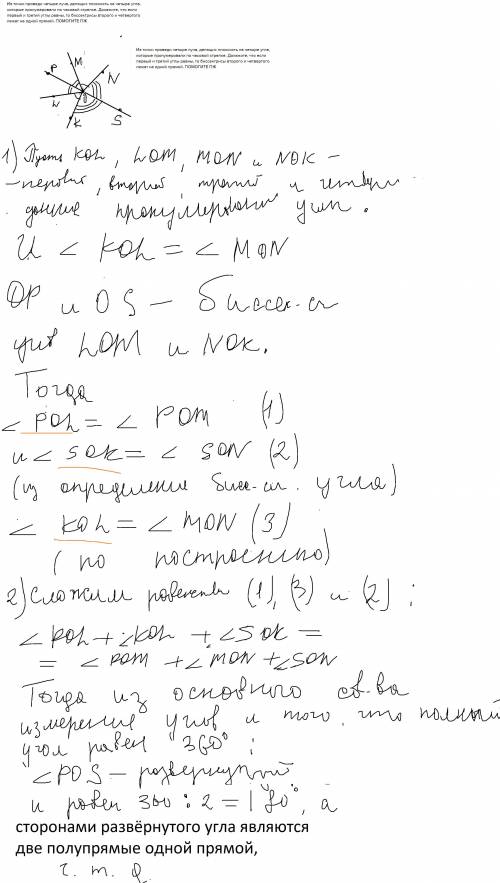 Из точки проведено четыре луча, делящих плоскость на четыре угла,
которые пронумеровали по часовой стрелке. Докажите, что если
первый и третий углы равны, то биссектрисы второго и четвертого
лежат на одной прямой. ПОМОГИТЕ ПЖ
Из точки проведено четыре луча, делящих плоскость на четыре угла,
которые пронумеровали по часовой стрелке. Докажите, что если
первый и третий углы равны, то биссектрисы второго и четвертого
лежат на одной прямой. ПОМОГИТЕ ПЖ
P M N
L K S
1) Пусть KOL, LOM, MON и NOK -
- первый, второй, третий и
данные углы.
И < KOL = < MON
OP и OS - биссек-сы
LOM и NOK.
Тогда
< POL = < POM (1)
и < SOK = < SON (2)
(из определение бисс-сы угла)
< KOL = < MON (3)
(по построению)
2) Сложим равенства (1), (3) и (2):
<POL + <KOL + <SOK =
= <POM + <MON + <SON
Тогда из основного св-ва
измерение углов и того, что полный
угол равен 360°:
<POS - развернутый
и равен 360 : 2 = 180°, а
сторонами развёрнутого угла являются
две полупрямые одной прямой,
ч. т. д.